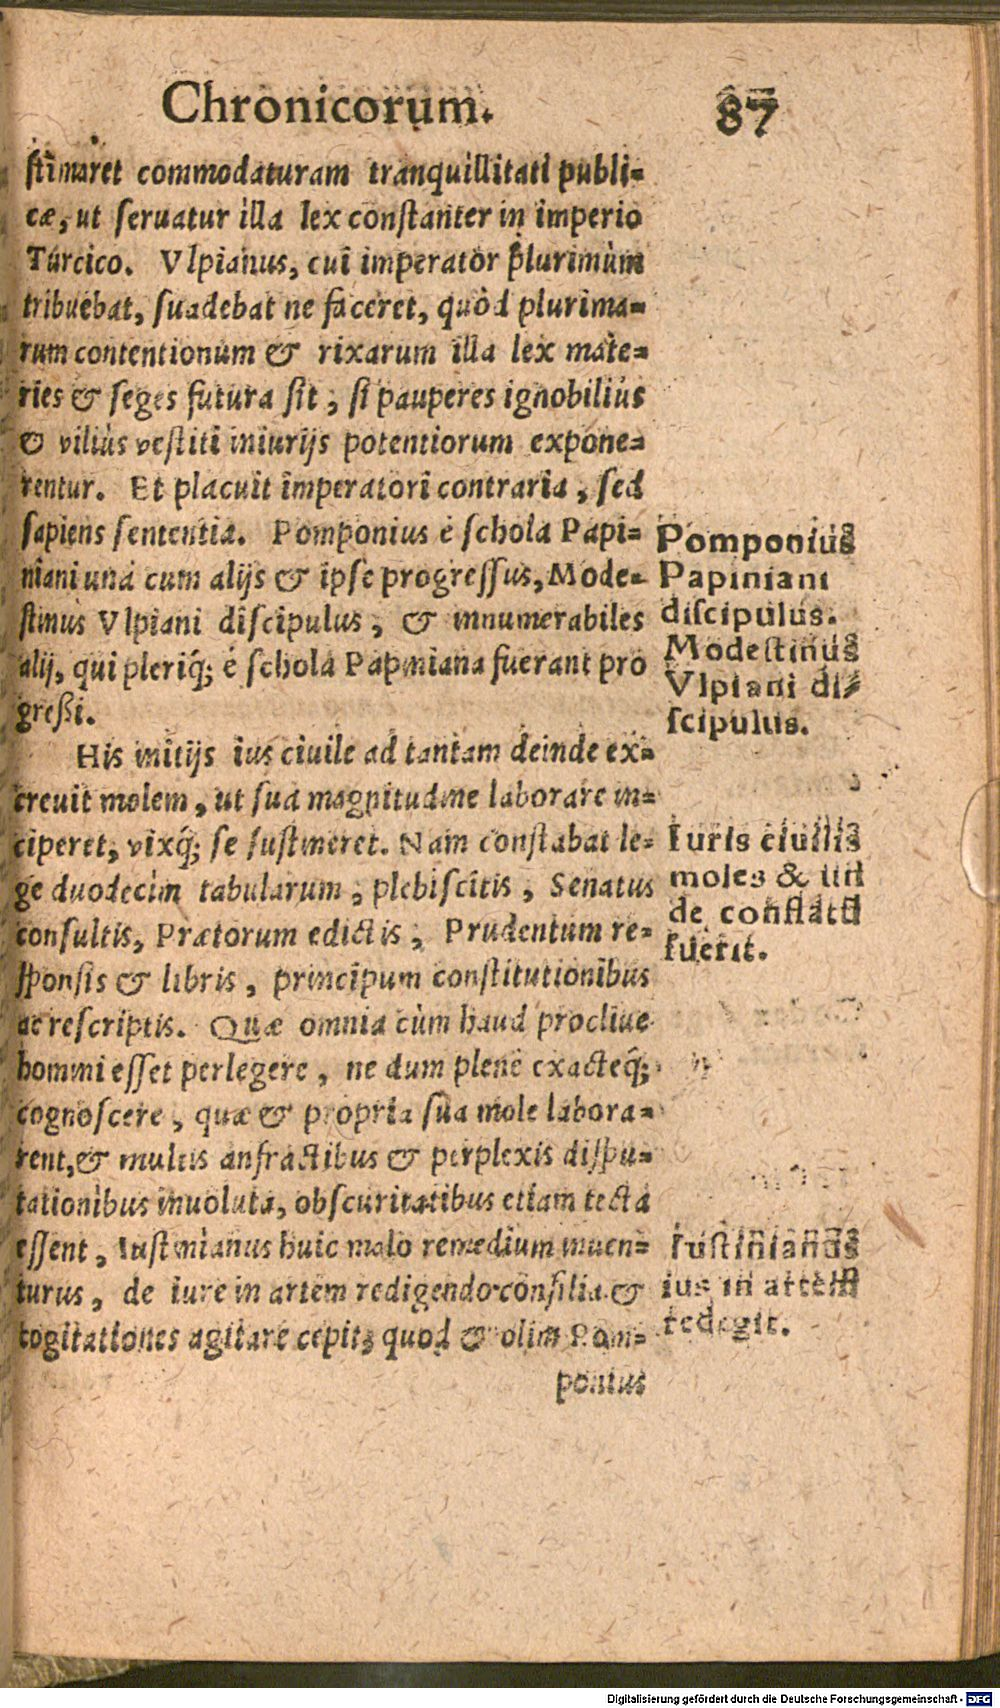 Chronicorum. 87
stimaret commodaturam tranquillitati publi-
cæ, ut seruatur illa lex constanter in imperio
Turcico. Vlpianus, cui imperator plurimùm
tribuebat, suadebat ne faceret, quòd plurima-
rum contentionum & rixarum illa lex mate-
ries & seges futura sit, si pauperes ignobiliùs
& viliùs vestiti iniurijs potentiorum expone-
rentur. Et placuit imperatori contraria, sed
sapiens sententia. Pomponius è schola Papi-
niani unà cum alijs & ipse progressus, Mode-
stinus Vlpiani discipulus, & innumerabiles
alij, qui pleriq; è schola Papiniana fuerant pro
greßi.
Pomponius
Papiniani
discipulus.
Modestinus
Vlpiani di-
scipulus.
His initijs ius ciuile ad tantam deinde ex-
creuit molem, ut sua magnitudine laborare in-
ciperet, vixq; se sustineret. Nam constabat le-
ge duodecim tabularum, plebiscitis, Senatus
consultis, Prætorum edictis, Prudentum re-
sponsis & libris, principum constitutionibus
ac rescriptis. Quæ omnia cùm haud procliue
homini esset perlegere, ne dum plenè exacteq;
cognoscere, quæ & propria sua mole labora-
rent, & multis anfractibus & perplexis dispu-
tationibus inuoluta, obscuritatibus etiam tecta
essent, Iustinianus huic malo remedium inuen-
turus, de iure in artem redigendo consilia &
cogitationes agitare cepit, quod & olim Pom-
ponius
Iuris ciuilis
moles & un
de conflata
fuerit.
Iustinianus
ius in artem
redegit.
Digitalisierung gefördert durch die Deutsche Forschungsgemeinschaft - DFG